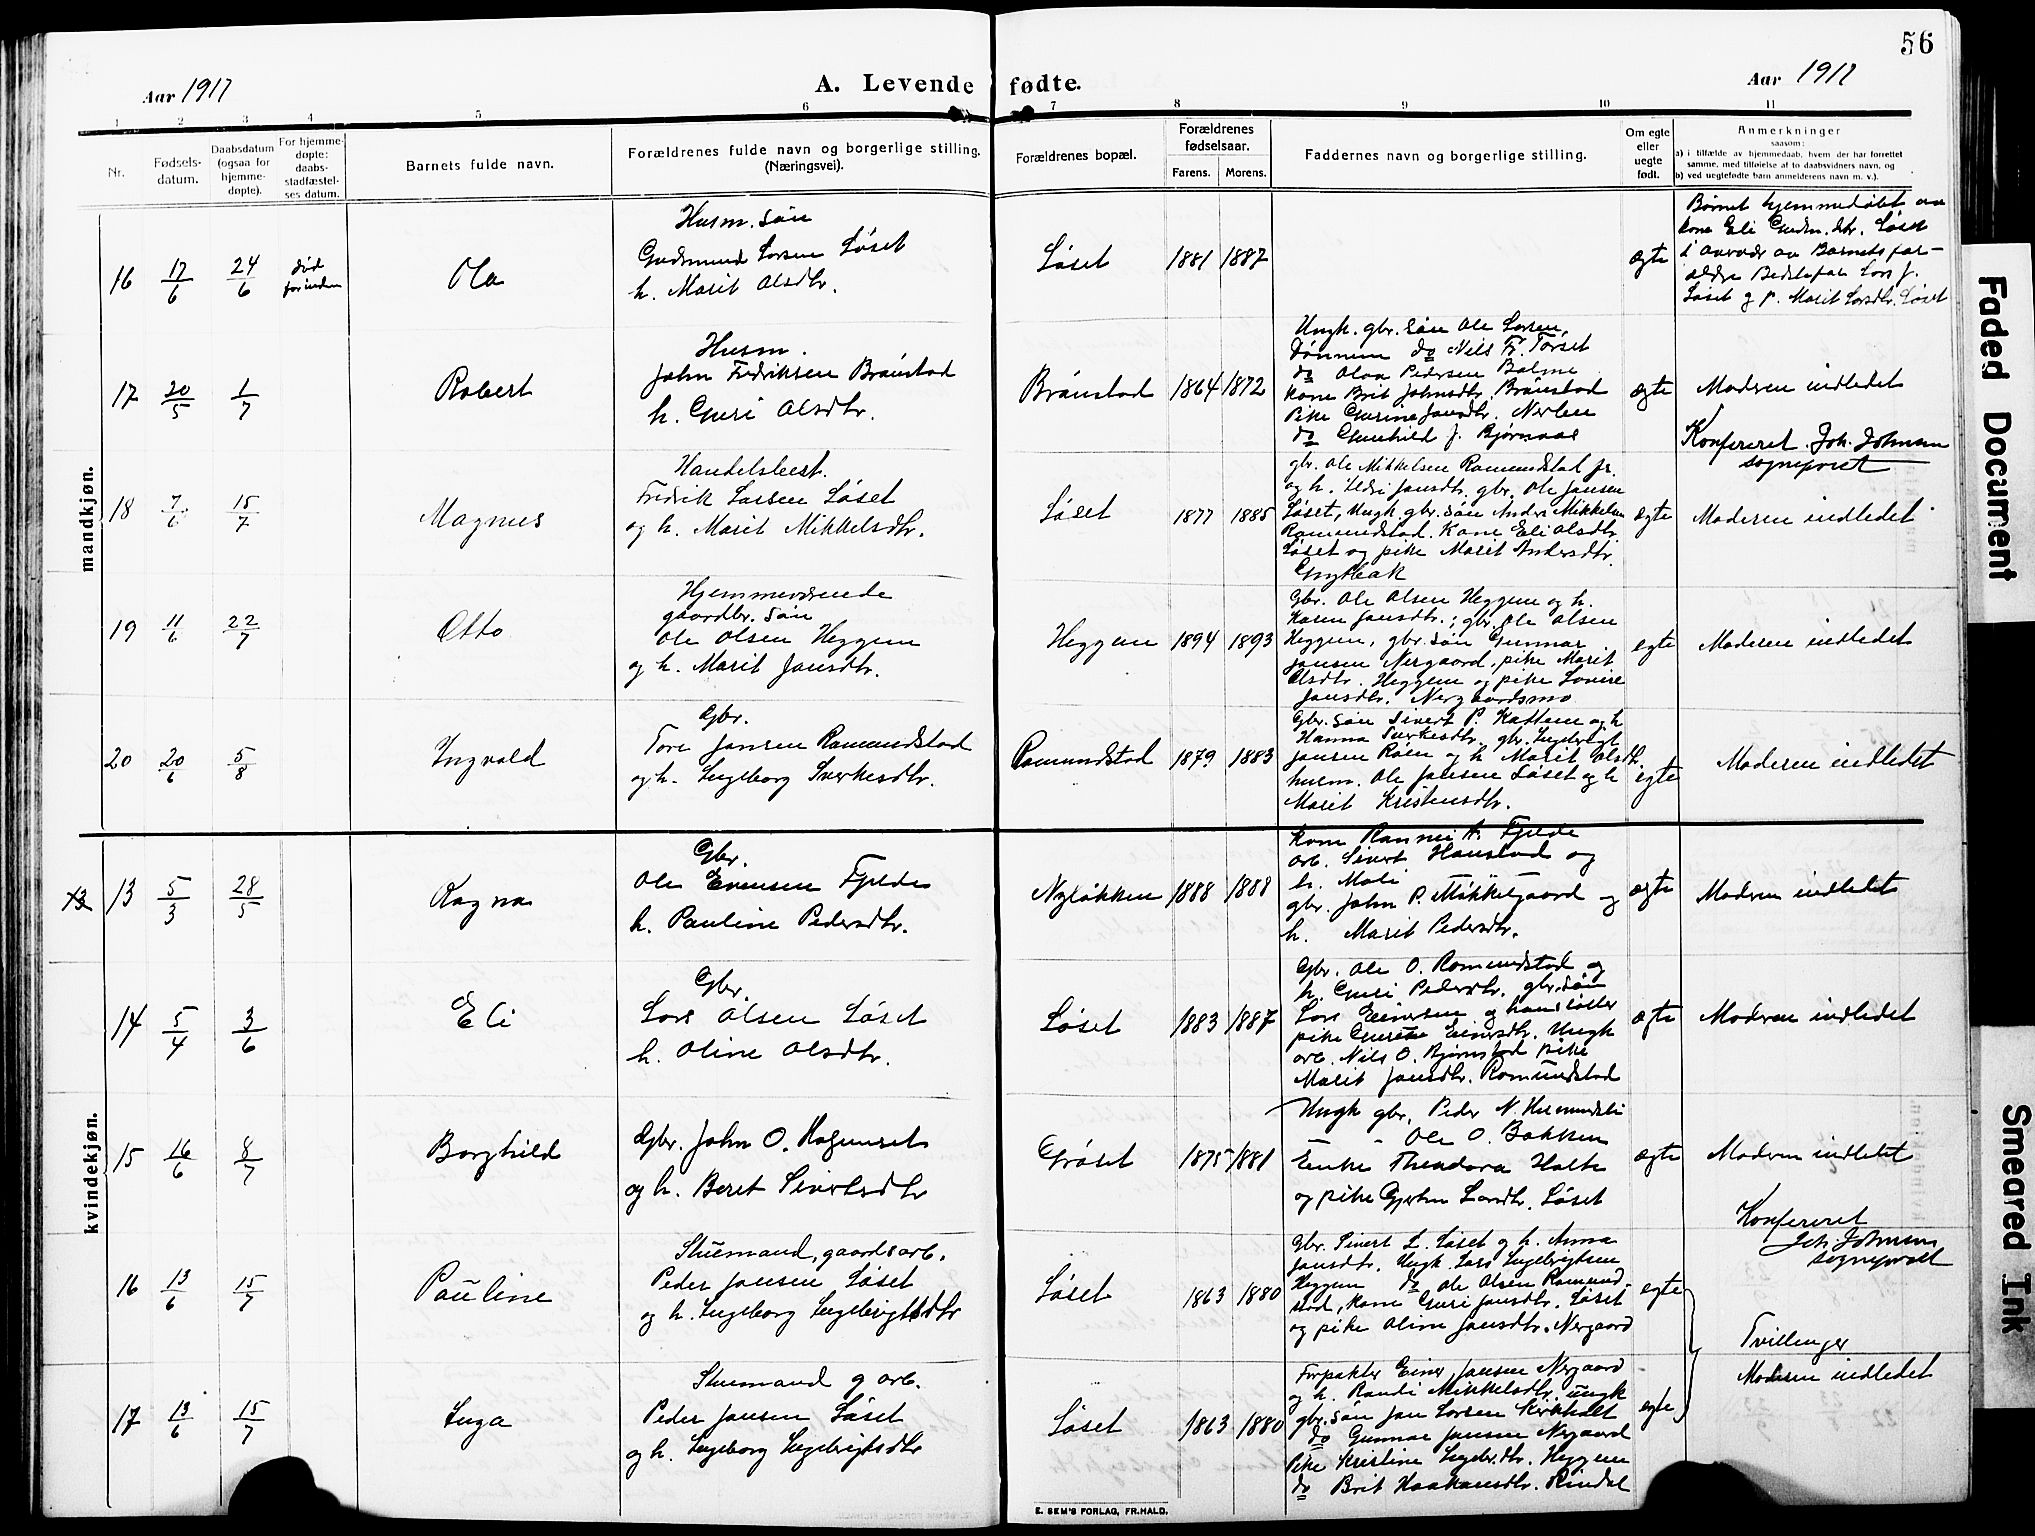 56
Aar 1917
A. Levende fødte.
Aar 1917
1 2 3 4 5 6 7 8 9 10 11
Nr.
Fødsels-
datum.
Daabsdatum
(ogsaa for
hjemme-
døpte).
For hjemme-
døpte:
daabs-
stadfæstel-
ses datum.
Barnets fulde navn.
Forældrenes fulde navn og borgerlige stilling.
(Næringsvei).
Forældrenes bopæl.
Forældrenes
fødselsaar.
Farens. Morens.
Faddernes navn og borgerlige stilling.
Om egte
eller
uegte
født.
Anmerkninger
saasom:
a) i tilfælde av hjemmedaab, hvem der har forrettet
samme, med tilføielse af to daabsvidners navn, og
b) ved uegtefødte barn anmelderens navn m. v.).
mandkjøn.
16 17/6 24/6
død
forinden
Ola
Husm. søn
Gudmund Larsen Løset
h. Marit Olsdtr.
Løset 1881 1887
ægte
Barnet hjemmedøbt av
kone Eli Gudm.dtr. Løset
i overvær av Barnets for-
ældre Bedstefar Lars J.
Løset g p. Marit Larsdtr. Løset
17 20/5 1/7
Robert
Husm.
John Fredriksen Brønstad
h. Guri Olsdtr.
Brønstad 1864 1872
Ungk. gbr. søn Ole Larsen,
Dønnem do Nils Fr. Torset
do Olaa Pedersen Bolme
Kone Brit Johnsdtr. Brønstad
Pike Gurine Jonsdtr.
do Gunhild J.
ægte
Moderen indledet
Konfereret Joh. Johnsen
sogneprest
18 7/6 15/7
Magnus
Handelsbest.
Fredrik Larsen Løset
og h. Marit Mikkelsdtr.
Løset 1877 1885
gbr. Ole Mikkelsen Romundstad jr.
og h. Jansdtr. gbr. Ole Jansen
Løset, Ungk. gbr. søn Anders Mikkelsen
Romundstad. Kone Eli Olsdtr.
Løset og pike Marit Andersdtr.
ægte
Moderen indledet
19 11/6 22/7
Otto
Hjemmeværende
gaardbr. søn
Ole Olsen Heggem
og h. Marit Jansdtr.
Heggem 1894 1893
Gbr. Ole Olsen Heggem og h.
Karen Jansdtr.; gbr. Ole Olsen
Heggem, gbr. søn Gunnar
Jansen Nergaard, pike Marit
Olsdtr. Heggem og pike Lovise
Jansdtr. Nergaardsmo
egte
Moderen indledet
20 20/6 5/8
Ingvald
Gbr.
Tore Jansen Romundstad
og h. Ingeborg Sverkesdtr.
Romundstad 1879 1883
Gbr. søn Sivert P. Kattem og h
Hanna Sverkesdtr, gbr. Ingebrigt
Jansen Røen og h Marit Olsdtr.
husm. Ole Jansen Løset og h
Marit Kristensdtr.
egte
Moderen indledet
kvindekjøn.
13 13 5/3 28/5
Ragna
Gbr.
Ole Evensen Fjelde
h. Pauline Pedersdtr.
Nyløkken 1888 1888
Kone Rannei A. Fjelde
arb. Sivert Haustad og
h. Mali
gbr. John P. Mikkelgaard og
h. Marit Pedersdtr.
ægte
Moderen indledet
14 5/4 3/6
Eli
Gbr.
Lars Olsen Løset
h. Oline Olsdtr.
Løset 1883 1887
Gbr. Ole O. Romundstad og
h. Guri Pedersdtr. gbr. søn
Lars Einersen g hans søster
pike Gurine Einersdtr. Ungk
arb. Nils O. Bjørnstad pike
Marit Jansdtr. Romundstad
ægte
Moderen indledet
15 16/6 8/7
Borghild
Gbr. John O. Hagenset
og h. Beret Sivertsdtr
Grøset 1875 1881
Ungk gbr. Peder N. Hermundsli
" - Ole O. Bakken
Enke Theodora Holte
og pike Gjertru Larsdtr. Løset
ægte
Moderen indledet
Konfereret
Joh. Johnsen
sogneprest
16 13/6 15/7
Pauline
Stuemand, gaardsarb.
Peder Jansen Løset
og h. Ingeborg Ingebrigtsdtr
Løset 1863 1880
Gbr. Sivert L. Løset og h. Anna
Jansdtr. Ungk Lars Ingebrigtsen
Heggem do Ole Olsen Romund-
stad, Kone Guri Jansdtr. Løset
og pike Oline Jansdtr. Nergaard
egte
Tvillinger
Moderen indledet
17 13/6 15/7
Inga
Stuemand g arb.
Peder Jansen Løset
og h. Ingeborg Ingebrigtsdtr
Løset 1863 1880
Forpakter Einer Jansen Nergaard
og h. Randi Mikkelsdtr. ungk
gbr. søn Jan Larsen Kirkholt
do Gunnar Jansen Nergaard
Pike Kristine Ingebr.dtr. Heggem
do Brit Haakonsdtr. Rindal
egte
E. SEM'S FORLAG, FR.HALD.
Faded Document
Smeared Ink